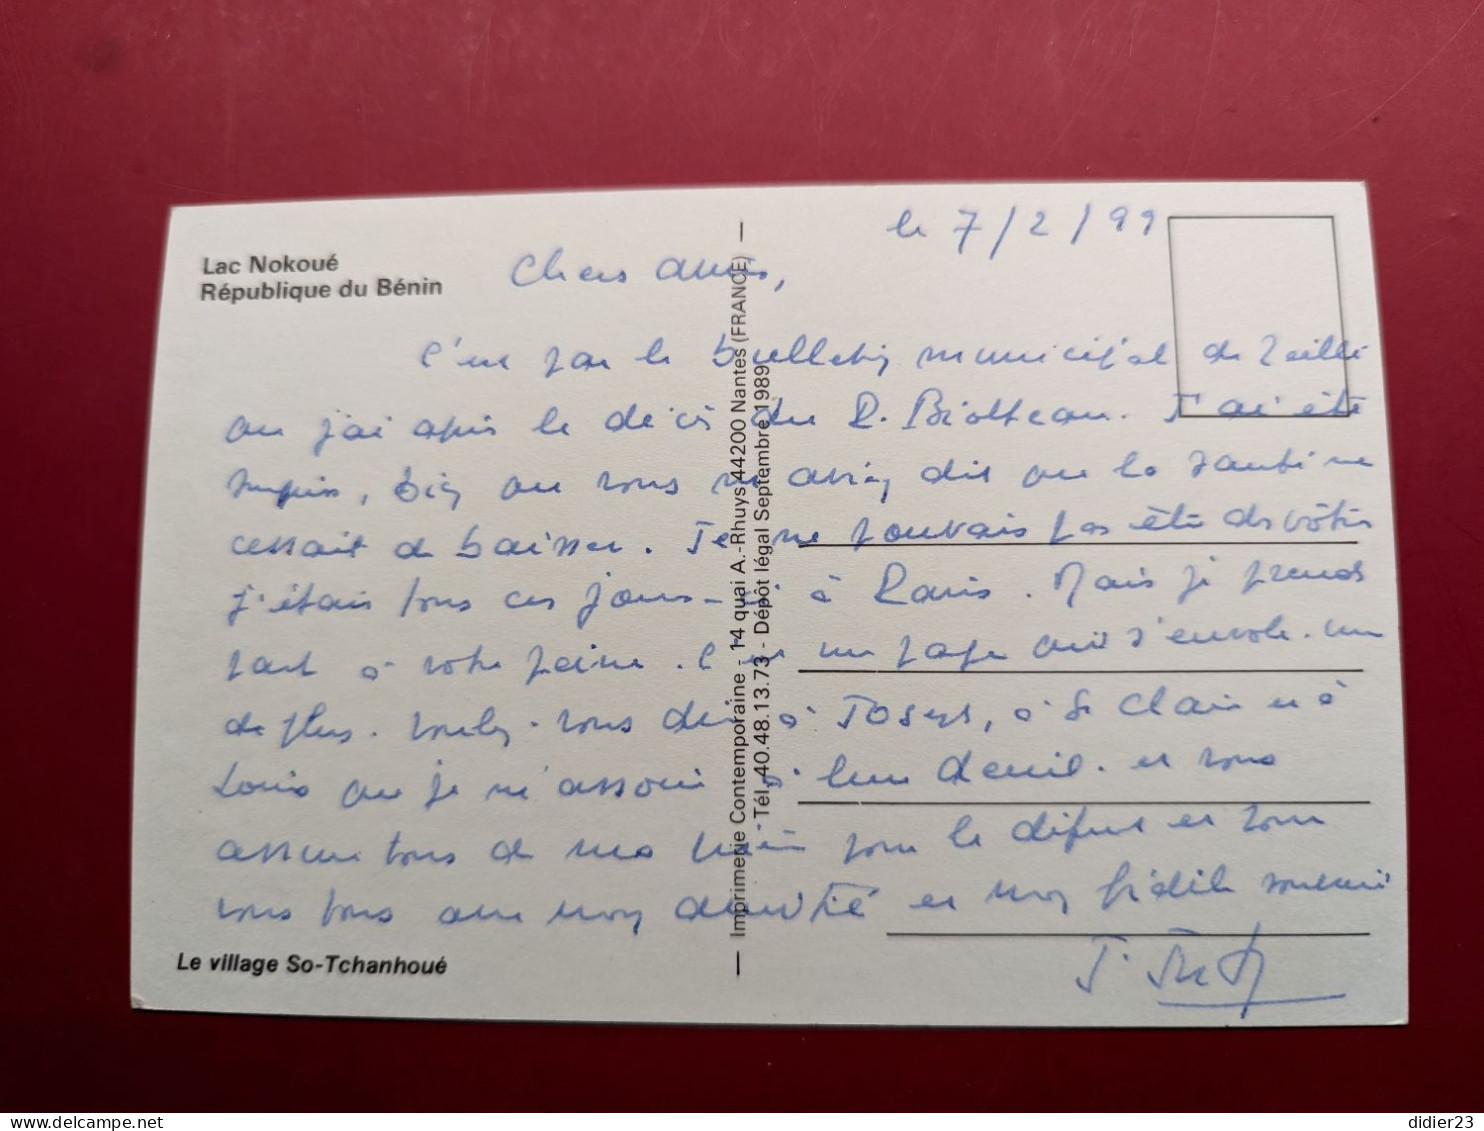 Lac Nokoué
République du Bénin
le 7/2/99
Chers amis,
C'est par le bulletin municipal de
que j'ai appris le décès du P. Biotteau. J'ai été
surpris, bien que vous m'aviez dit que la santé ne
cessait de baisser. Je ne pouvais pas être des vôtres
j'étais tous ces jours-ci à Paris. Mais je prends
part à votre peine. C'est une page qui s'envole. un
de plus. Voulez-vous dire à Josep, à St Clair et à
Louis que je m'associe à leur deuil. et vous
assure tous de ma prière pour le défunt et pour
vous tous avec mon amitié et mon fidèle souvenir
J.
Le village So-Tchanhoué
— Imprimerie Contemporaine - 14 quai A.-Rhuys 44200 Nantes (FRANCE) —
Tél. 40.48.13.73 - Dépôt légal Septembre 1989
didier23